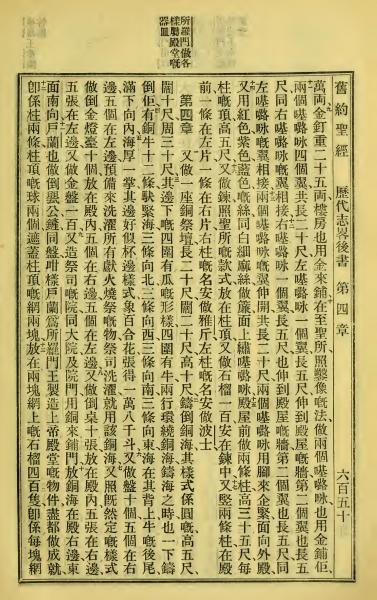 所羅門做各
樣嘅殿堂嘅
器皿
舊約聖經 歷代志畧後書 第四章 六百五十
萬両金釘重二十五両樓房也用金來鋪在至聖所照雕像嘅法做兩個嘰嚕咏也用金鋪佢、
兩個嘰嚕咏四個翼共長二十尺左嘰嚕咏一個翼長五尺伸到殿屋嘅牆第二個翼也長五
尺同右嘰嚕咏嘅翼相接右嘰嚕咏一個翼長五尺也伸到殿屋嘅牆第二個翼也長五尺同
左嘰嚕咏嘅翼相接兩個嘰嚕咏嘅翼伸開共長二十尺兩個嘰嚕咏用腳來企緊面向外殿、
又用紅色紫色藍色嘅絲同白細麻絲做簾面上繡嘰嚕咏殿屋前做兩條柱高三十五尺每
柱嘅項高五尺又做鍊照聖所嘅款式放在柱項又做石榴一百安在鍊中又竪兩條柱在殿
前一條在左片一條在右片右柱嘅名安做雅斤左柱嘅名安做波士
第四章 又做一座銅祭壇長二十尺闊二十尺高十尺鑄倒銅海其樣式係圓嘅高五尺、
闊十尺周三十尺其邊下嘅四圍有瓜嘅形樣四圍有牛兩行環繞銅海鑄海之時也一下鑄
倒佢有銅牛十二條馱緊海三條向北三條向西三條向南三條向東海在其背上牛嘅後尾
滿下向內海厚一掌其邊好似杯邊樣式象百合花張得一萬八千斗又做盤十個五個在右
邊五個在左邊預備來洗濯所有獻火燒祭嘅物祭司洗濯就用該銅海又照既然定嘅樣式
做倒金燈臺十個放在殿內五個在右邊五個在左邊又做倒桌十張放在殿內五張在右邊、
五張在左邊又做金盤一百又造祭司嘅院同大院及院門用銅來鋪門放銅海在殿右邊東
面南向戶蘭也做倒罌公鏟同盤咁樣戶蘭爲所羅門王製造上帝殿堂嘅物件盡都做成就
卽係柱兩條柱頂嘅球兩個遮蓋柱頂嘅網兩塊放在兩塊網上嘅石榴四百隻卽係每塊網